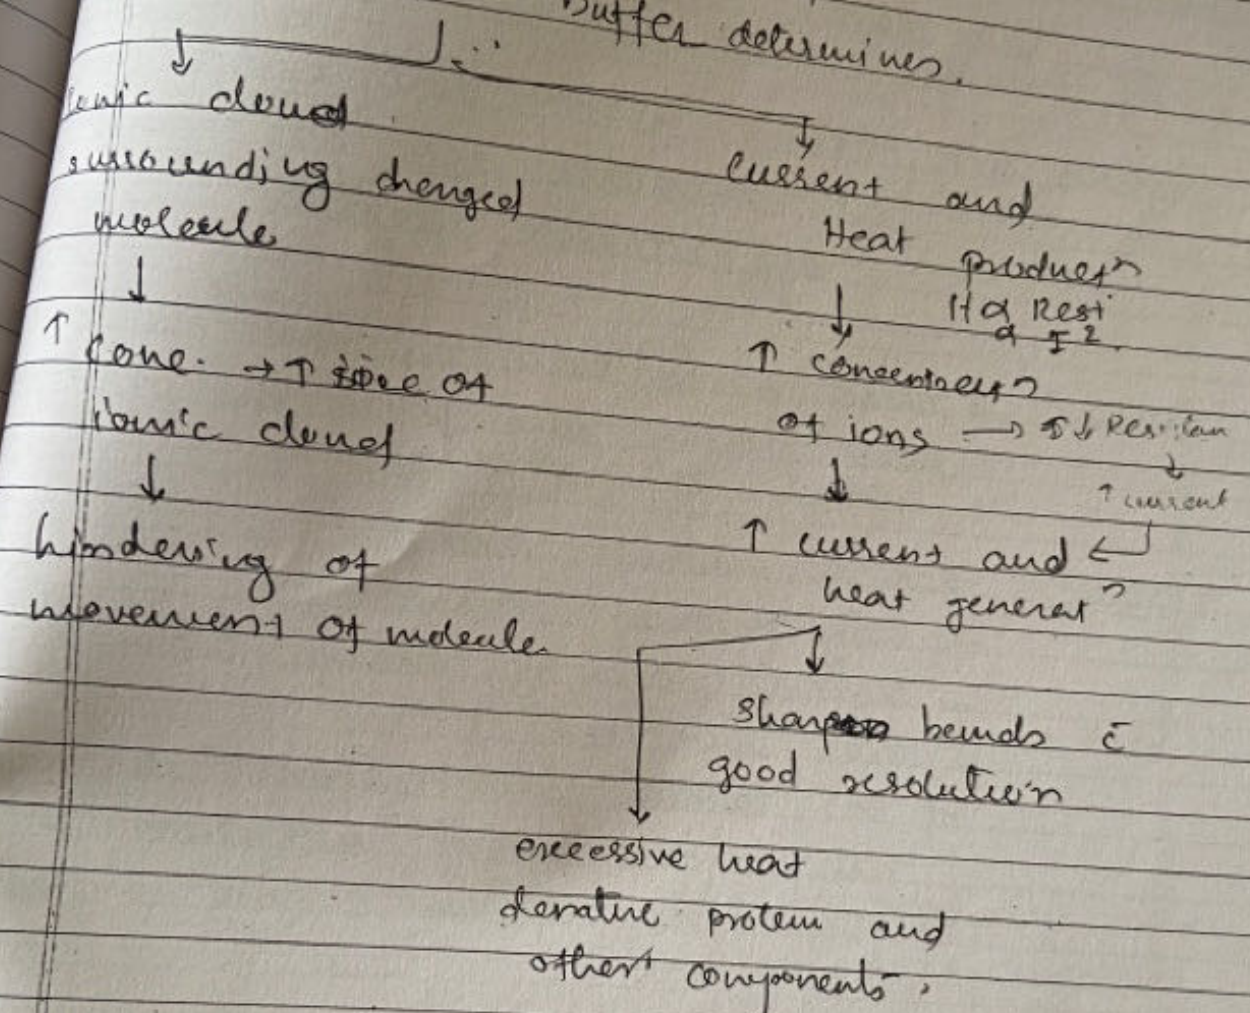 Buffer determines.
Ionic cloud
surrounding charged
molecule
↑ Conc. → ↑ size of
ionic cloud
hindering of
movement of molecule.
Current and
Heat producⁿ
H α Resi
α I²
↑ concentraⁿ
of ions → ↓ Resistan
↑ current
↑ current and
heat generatⁿ
sharp bands c̄
good resolution
excessive heat
denature protein and
other components.